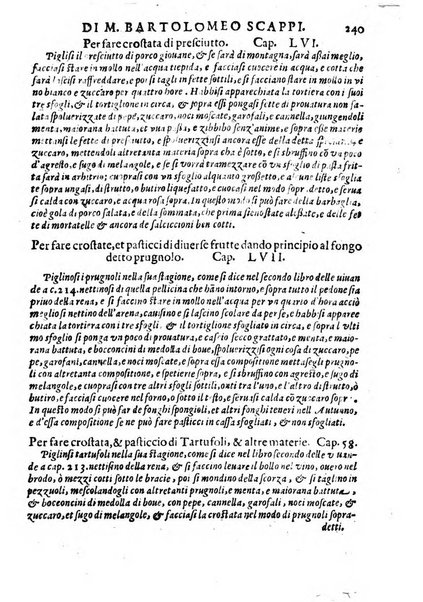 DI M. BARTOLOMEO SCAPPI. 240
Per fare crostata di presciutto. Cap. LVI.
Piglisi il presciutto di porco giouane, & se sarà di montagna, sarà assai meglio,
facciasi stare in molle nell'acqua tiepida, e facciasi cuocere in acqua, e cotta che
sarà lascisi raffreddare, e poi tagisi in fette sottili, e facciasi stare in mollo in vi
no bianco e zuccaro per quattro hore. Habbisi apparecchiata la tortiera con i suoi
sfogli, & il tortiglione in circa, & sopra essi pongasi fette di prouatura non sa-
lata spoluerizzate di pepe, & zuccaro, noci moscate, garofali, e cannella, giungendoli
menta, maiorana battute, con vua passa, & zibibbo senz'anime, e sopra esse materie
mettansi le fette del presciutto, e spoluerizzinsi ancora esse della detta spetieria e
zuccaro, mettendoli altretanta materia sopra che è sotto, e si sbruffino cõ vn poco
d'agresto, o sugo di melangole, e se si vorrà tramezare con vn sfoglio di pasta sfrit
tata sarà in arbitrio; cuoprasi con vn sfoglio alquanto grossetto, e con altre liste
sopra ungasi, di strutto, o butiro liquefatto, e cuocasi nel modo sopra detto, e ser-
uasi calda con zuccaro, & acqua rosa sopra. In questo modo si può fare della barbaglia,
cioè gola di porco salata, e della sommata, che prima sieno state alessate, & delle fet-
te di mortatelle & ancora de salciccioni ben cotti.
Per fare crostate, et pasticci di diuerse frutte dando principio al fongo
detto prugnolo. Cap. LVII.
Piglinosi i prugnoli nella sua stagione, come si dice nel secondo libro delle viuan
de a c. 214. nettinosi di quella pellicina che hanno intorno, & sopra tutto il pedone sia
priuo della rena, & si faccino stare in mollo nell'acqua per vn quarto d'hora acciò
meglio si nettino dell'arena, cauinsi, & lascinsi scolare da per se stessi, & habbisi appa-
recchiata la tortiera con tre sfogli, & il tortiglione sfogliato in circa, & sopra i
sfogli si ponga vn poco di prouatura, e cascio secco grattato, e menta, e maio-
rana battuta, e bocconcini di medolle di boue, spoluerizzisi ogni cosa cõ zuccaro, pe
pe, garofani, cannella, e noci moscate, e sopra essa compositione si mettino i prugnoli
con altretanta compositione, & spetierie sopra, & si sbruffino cõ agresto, e sugo di
melangole, e cuoprasi con altri sfogli sottili, onti tra l'uno, & l'altro di strutto, ò
butiro, e facciasi cuocere nel forno, e seruasi calda con zuccaro, et sugo di melangole.
In questo modo si può far de fonghi spongioli, et altri fonghi teneri nell'Autunno,
e d'essa compositione se ne può fare pasticci in casse sfogliati, & non sfogliati.
Per fare crostata, & pasticcio di Tartufoli, & altre materie. Cap. 58.
Piglinsi tartufoli nella sua stagione, come si dice nel secondo libro delle viuan-
de a cap. 213. nettisino della rena, & si faccino leuare il bollo nel vino, ouero nel
brodo, ò mezzi cotti sotto le bracie, poi si mondino, & se saranno grossi taglinosi in
pezzuoli, mescolandogli con altretanti prugnoli, & menta, & maiorana battuta,
& bocconcini di medolla di boue, con pepe, cannella, garofali, noci moscate, &
zuccaro, et sugo di melangole, & facciasi la crostata nel modo di prugnoli sopra-
detti.